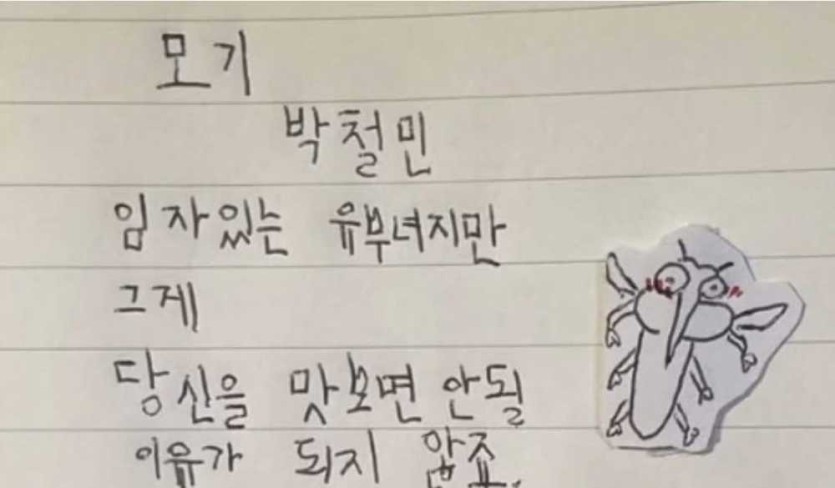 모기
박철민
임자있는 유부녀지만
그게
당신을 맛보면 안될
이유가 되지 않죠.